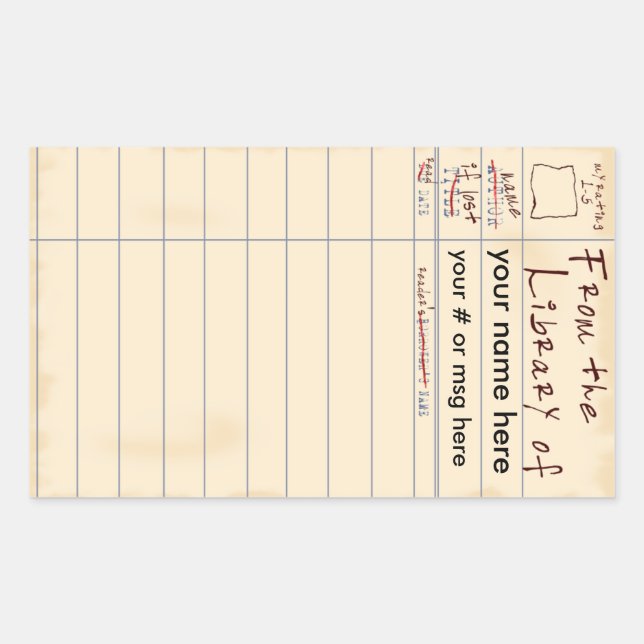 my rating
1-5
From the
Library of
name
AUTHOR
your name here
if lost
TITLE
your # or msg here
read
DUE DATE
reader's BORROWER'S NAME